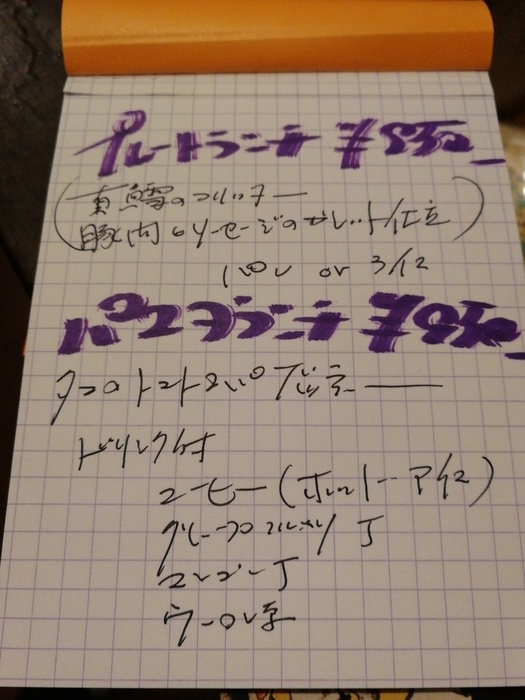 プレートランチ ¥850_
(真鱈のフリッター
豚肉のソーセージのガレット仕立)
パン or ライス
パスタランチ ¥850_
タコのトマトスパゲッティ
ドリンク付
コーヒー(ホット・アイス)
グレープフルーツ J
オレンジ J
ウーロン茶